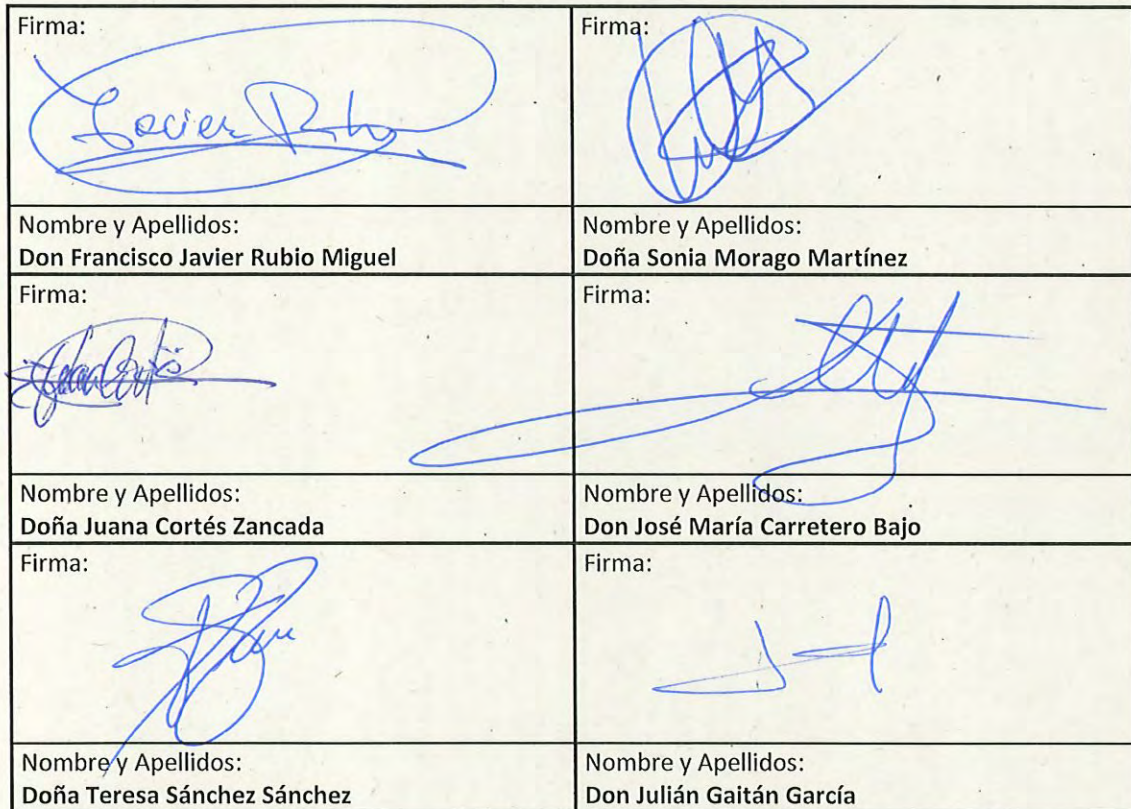 Firma:
Javier Rubio
Nombre y Apellidos:
Don Francisco Javier Rubio Miguel
Firma:
Nombre y Apellidos:
Doña Sonia Morago Martínez
Firma:
Nombre y Apellidos:
Doña Juana Cortés Zancada
Firma:
Nombre y Apellidos:
Don José María Carretero Bajo
Firma:
Nombre y Apellidos:
Doña Teresa Sánchez Sánchez
Firma:
Nombre y Apellidos:
Don Julián Gaitán García